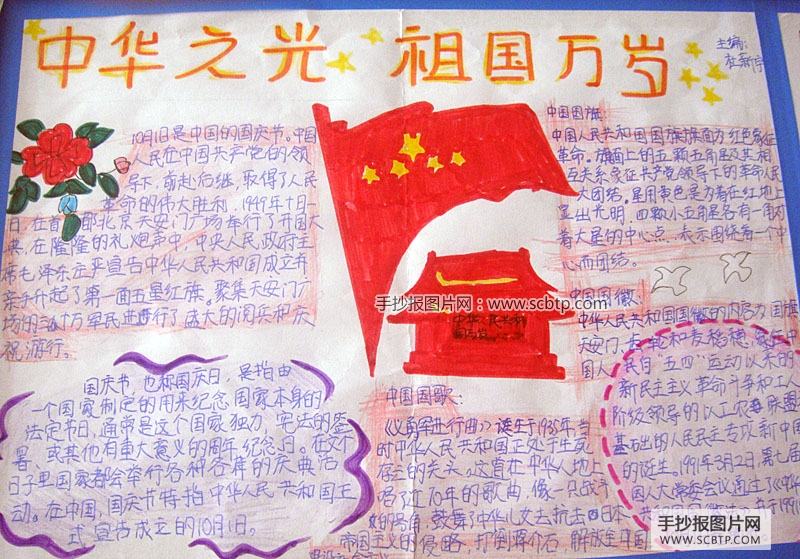 中华之光 祖国万岁
主编:
10月1日是中国的国庆节。中国
人民在中国共产党的领
导下,前赴后继,取得了人民
革命的伟大胜利。1949年十月一
日,在首都北京天安门广场举行了开国大
典,在隆隆的礼炮声中,中央人民政府主
席毛泽东庄严宣告中华人民共和国成立并
亲手升起了第一面五星红旗。聚集天安门广
场的三十万军民进行了盛大的阅兵和庆
祝游行。
国庆节也称国庆日,是指由
一个国家制定的用来纪念国家本身的
法定节日,通常是这个国家独力、宪法的签
署、或其他有重大意义的周年纪念日。在这个
日子里国家都会举行各种各样的庆典活
动。在中国,国庆节特指中华人民共和国正
式宣告成立的10月1日。
中国国歌:
《义勇军进行曲》诞生于1935年,当
时中华人民共和国正处于生死
存亡的关头。这首在中华大地上
唱了70年的歌曲,像一只战斗
的号角,鼓舞了中华儿女去抗击日本
帝国主义的侵略,打倒蒋介石,解放全中国
中国国旗:
中国人民共和国国旗旗面为红色象征
革命。旗面上的五颗五角星及其相
互关系象征共产党领导下的革命人民
大团结。星用黄色是为着在红地上
显出光明,四颗小五角星各有一角对
着大星的中心点,表示围绕着一个中
心而团结。
中国国徽:
中华人民共和国国徽的内容为国旗
天安门、齿轮和麦稻穗,象征中
国人民自“五四”运动以来的
新民主主义革命斗争和工人
阶级领导的以工农联盟为
基础的人民民主专政新中国
的诞生。1991年3月2日,第七届
国人大常委会议通过了《中华
手抄报图片网:www.scbtp.com
手抄报图片网
WWW.SCBTP.COM